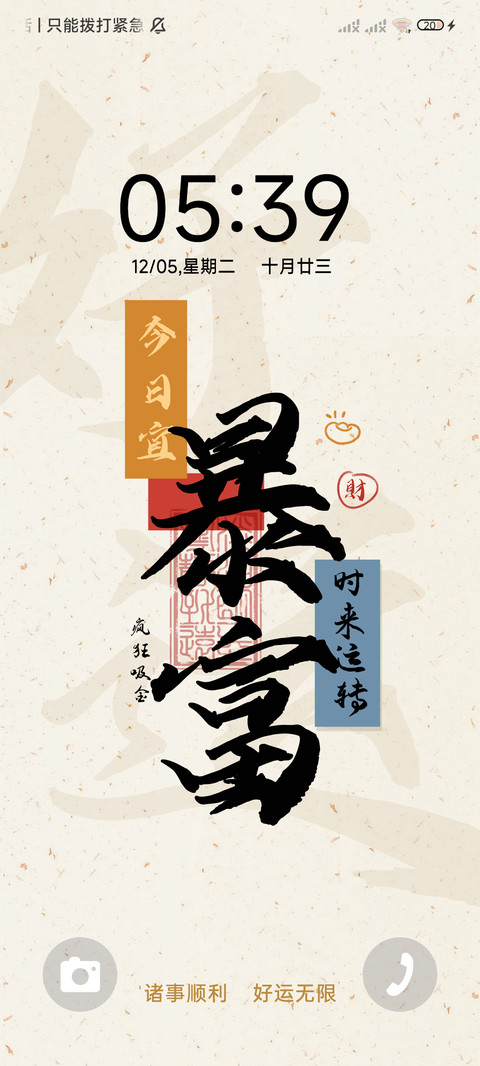 只能拨打紧急
20
05:39
12/05,星期二 十月廿三
今日宜
暴富
財
时来运转
疯狂吸金
诸事顺利 好运无限